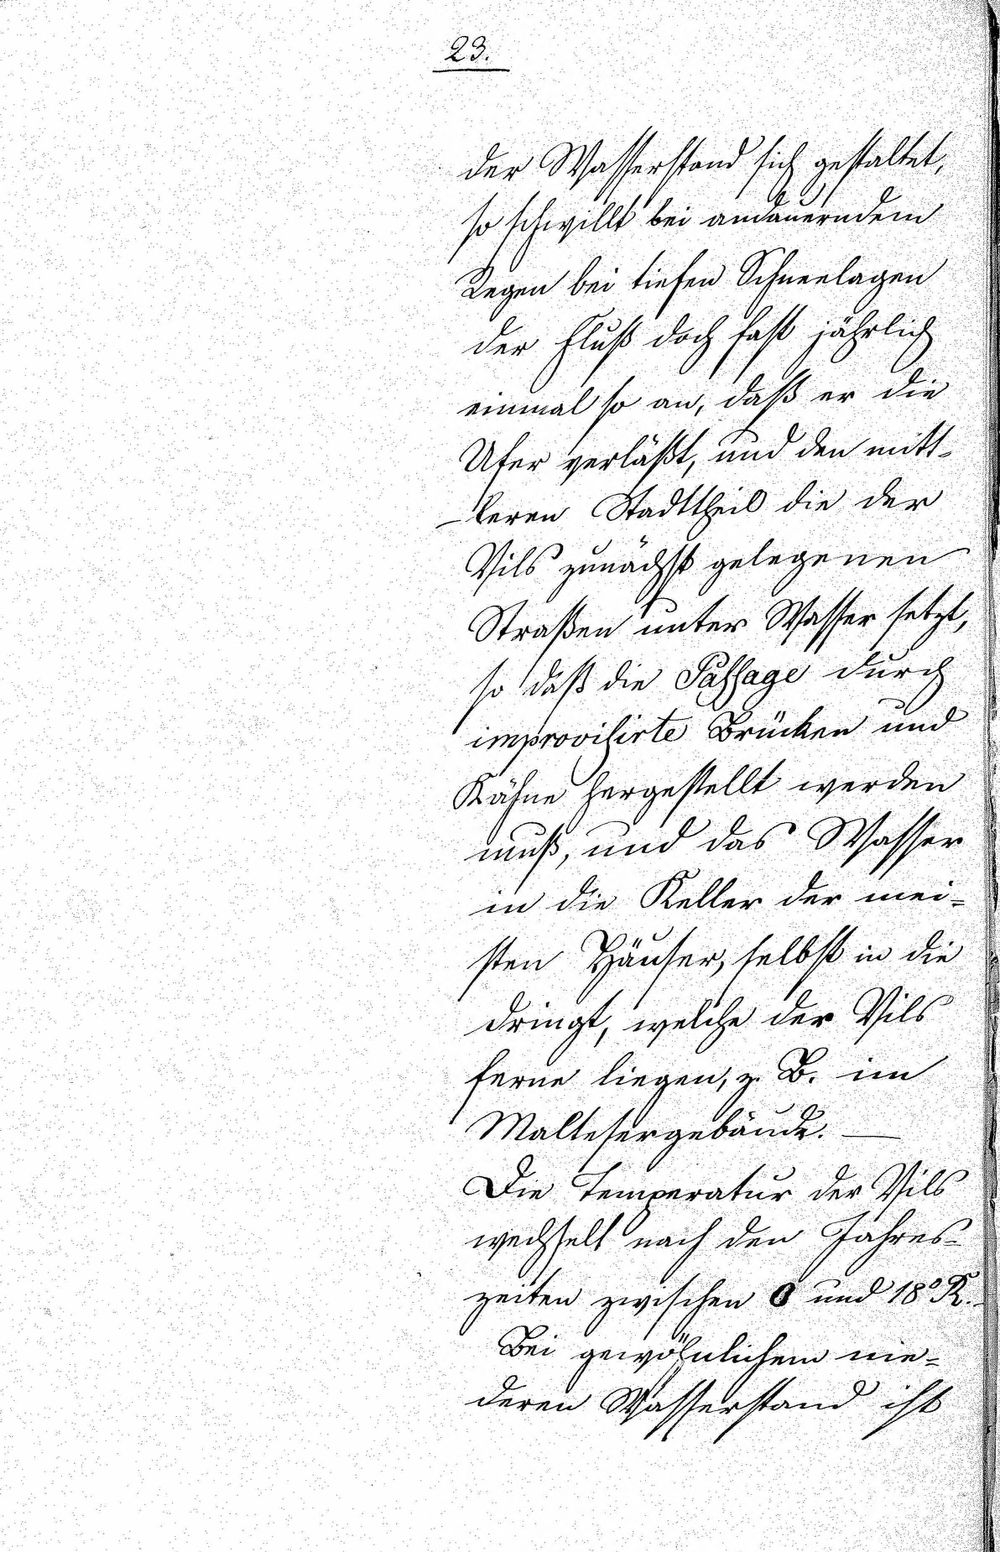 23.
der Wasserstand sich gestaltet,
so schwillt bei andauerndem
Regen bei tiefen Schneelagen
der Fluß doch fast jährlich
einmal so an, daß er die
Ufer verläßt, und den mitt-
leren Stadttheil die der
Vils zunächst gelegenen
Straßen unter Wasser setzt,
so daß die Passage durch
improvisirte Brücken und
Kähne hergestellt werden
muß, und das Wasser
in die Keller der mei-
sten Häuser, selbst in die
dringt, welche der Vils
ferne liegen, z. B. im
Maltesergebäude. —
Die Temperatur der Vils
wechselt nach den Jahres-
zeiten zwischen 0 und 18° R. -
Bei gewöhnlichem nie-
deren Wasserstand ist